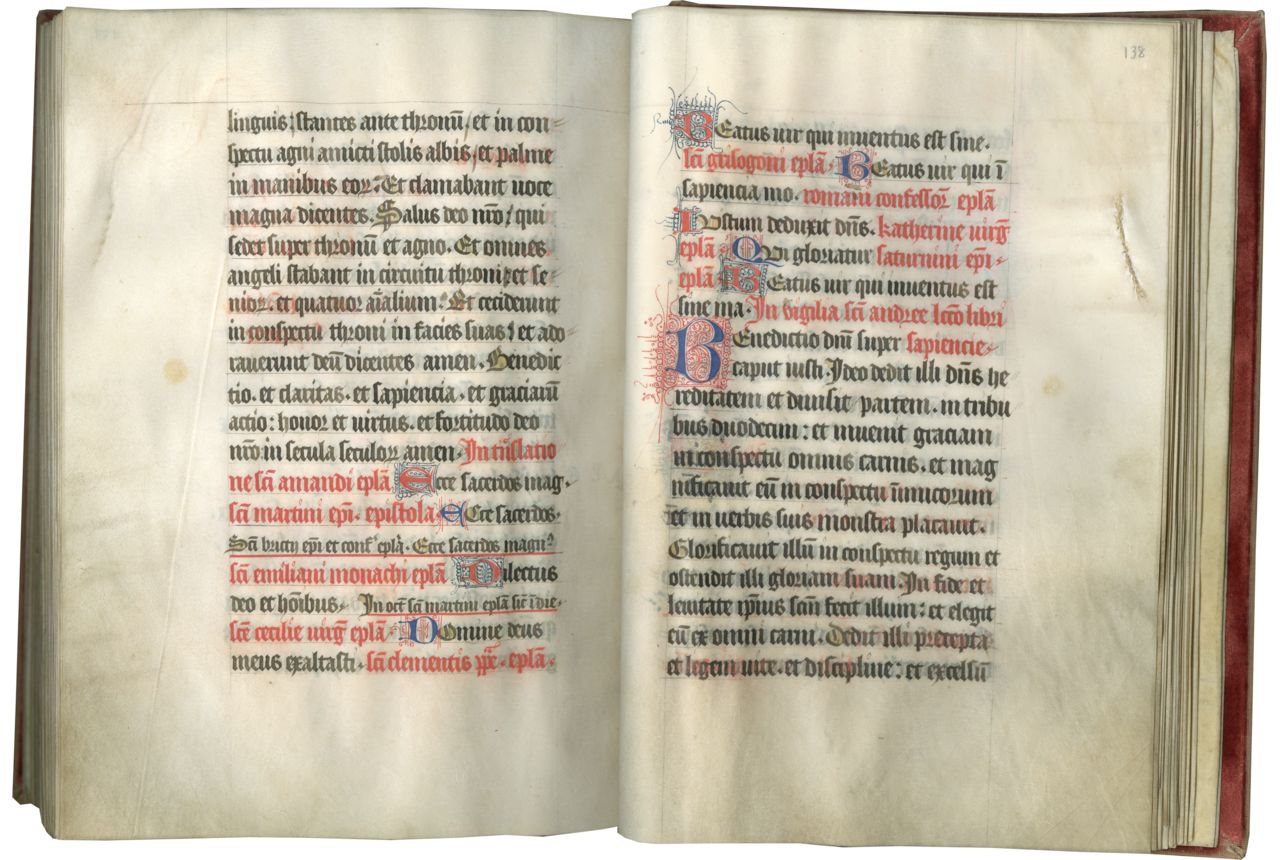 linguis; stantes ante thronū, et in con
spectu agni amicti stolis albis, et palme
in manibus eoꝝ. Et clamabant uoce
magna dicentes. Salus deo nr̄o, qui
sedet super thronū et agno. Et omnes
angeli stabant in circuitu throni, et se
nioꝝ. et quatuor aīalium. Et ceciderunt
in conspectu throni in facies suas, et ado
rauerunt deū dicentes amen. Benedic
tio. et claritas. et sapiencia. et graciarū
actio: honor et uirtus. et fortitudo deo
nr̄o in secula seculoꝝ amen. In trāslatio
ne sc̄i amandi epl̄a Ecce sacerdos mag.
sc̄i martini ep̄i. epistola. Ecce sacerdos.
Sc̄i briccij ep̄i et conf. epl̄a. Ecce sacerdos magn⁹
sc̄i emiliani monachi epl̄a Dilectus
deo et hoībus. In oct̄ sc̄i martini epl̄a sic̄ ī die.
sc̄e cecilie uirḡ epl̄a. Domine deus
meus exaltasti. sc̄i clementis p̄pe. epl̄a.
138
Beatus uir qui inuentus est sine.
sc̄i grisogoni epl̄a. Beatus uir qui ī
sapiencia mo. romani confessor̄ epl̄a
Iustum deduxit dn̄s. katherine uirḡ
epl̄a. Qui gloriatur saturnini ep̄i
epl̄a. Beatus uir qui inuentus est
sine ma. In vigilia sc̄i andree lc̄co libri
Benedictio dn̄i super sapiencie.
caput iusti. Ideo dedit illi dn̄s he
reditatem et diuisit partem. in tribu
bus duodecim: et inuenit graciam
in conspectu omnis carnis. et mag
nificauit eū in conspectu īimicorum
et in uerbis suis monstra placauit.
Glorificauit illū in conspectu regum et
ostendit illi gloriam suam. In fide et
lenitate ip̄ius sc̄m fecit illum: et elegit
eū ex omni carni. Dedit illi precepta
et legem uite. et discipline: et excelsū